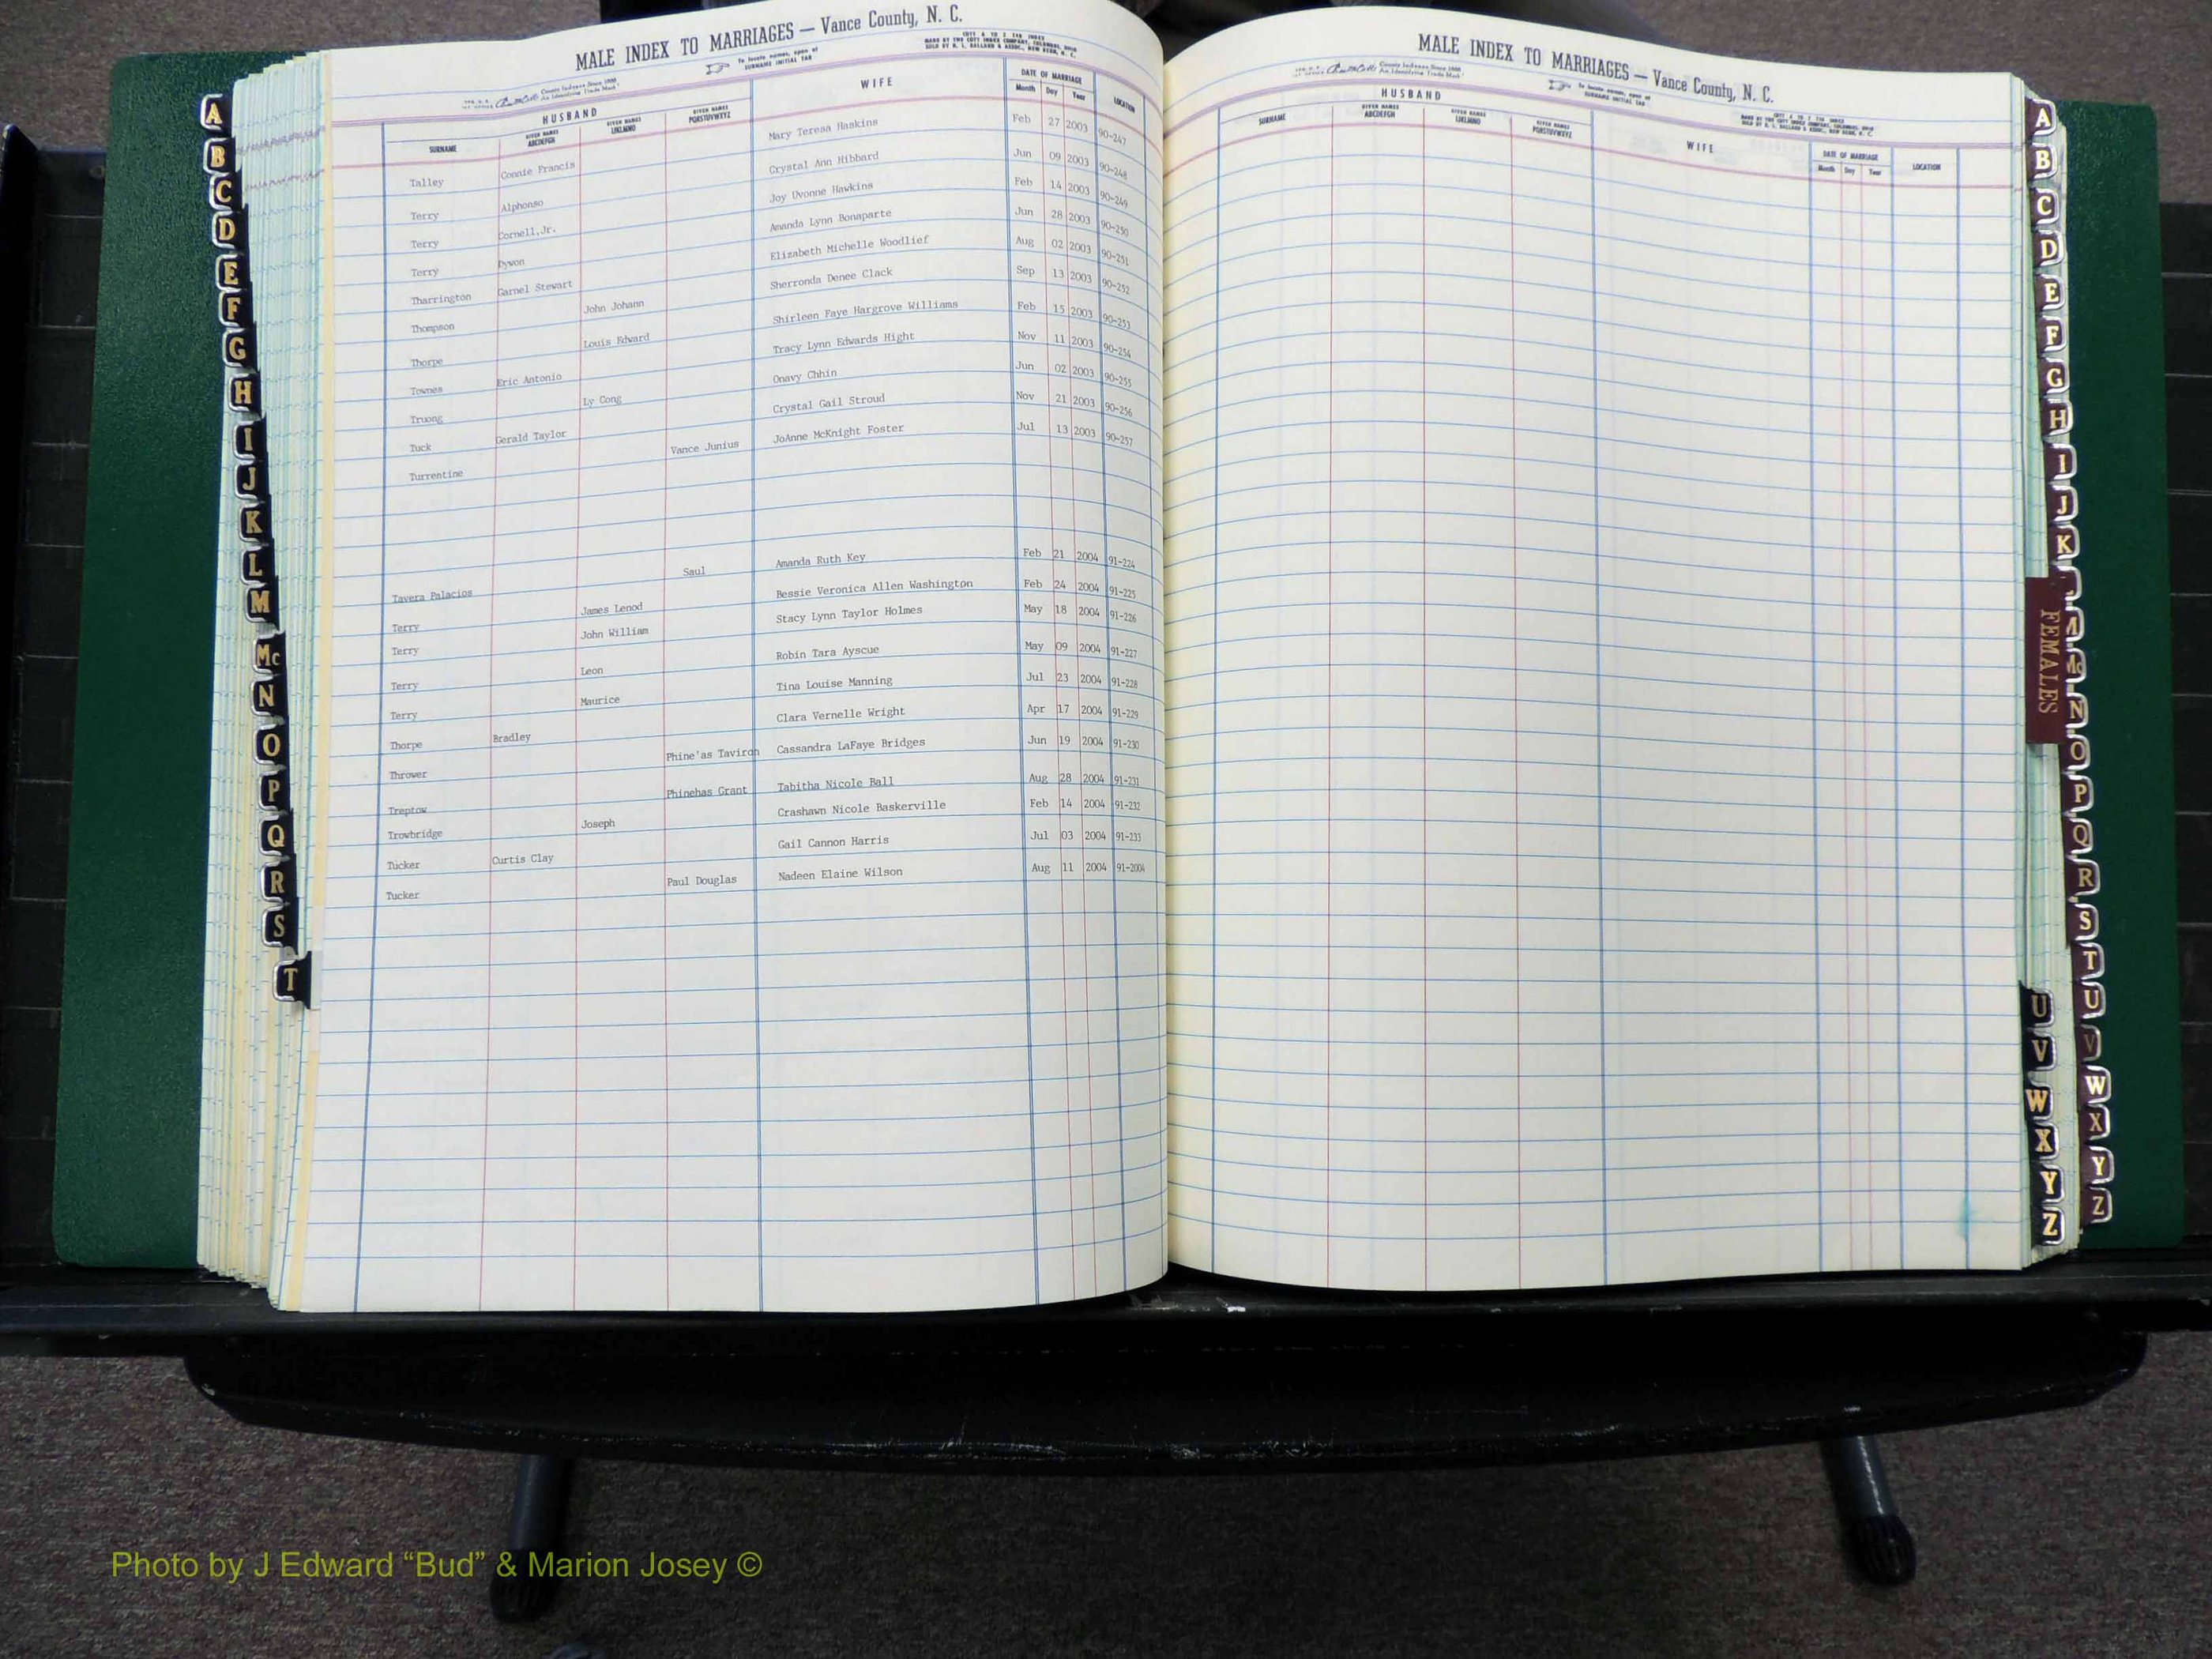 MALE INDEX TO MARRIAGES — Vance County, N. C.
To locate names, open at
SURNAME INITIAL TAB
COTT A TO Z TAB INDEX
MADE BY THE COTT INDEX COMPANY, COLUMBUS, OHIO
SOLD BY
County Indexes Since 1888
An Identifying Trade Mark
HUSBAND WIFE DATE OF MARRIAGE LOCATION
SURNAME GIVEN NAMES ABCDEFGH GIVEN NAMES IJKLMNO GIVEN NAMES PQRSTUVWXYZ Month Day Year
Talley Connie Francis Mary Teresa Haskins Feb 27 2003 90-247
Terry Alphonso Crystal Ann Hibbard Jun 09 2003 90-248
Terry Cornell,Jr. Joy Uvonne Hawkins Feb 14 2003 90-249
Terry Dywon Amanda Lynn Bonaparte Jun 28 2003 90-250
Tharrington Garnel Stewart Elizabeth Michelle Woodlief Aug 02 2003 90-251
Thompson John Johann Sherronda Denee Clack Sep 13 2003 90-252
Thorpe Louis Edward Shirleen Faye Hargrove Williams Feb 15 2003 90-253
Townes Eric Antonio Tracy Lynn Edwards Hight Nov 11 2003 90-254
Truong Ly Cong Onavy Chhin Jun 02 2003 90-255
Tuck Gerald Taylor Crystal Gail Stroud Nov 21 2003 90-256
Turrentine Vance Junius JoAnne McKnight Foster Jul 13 2003 90-257
Tavera Palacios Saul Amanda Ruth Key Feb 21 2004 91-224
Terry James Lenod Bessie Veronica Allen Washington Feb 24 2004 91-225
Terry John William Stacy Lynn Taylor Holmes May 18 2004 91-226
Terry Leon Robin Tara Ayscue May 09 2004 91-227
Terry Maurice Tina Louise Manning Jul 23 2004 91-228
Thorpe Bradley Clara Vernelle Wright Apr 17 2004 91-229
Thrower Phine'as Taviron Cassandra LaFaye Bridges Jun 19 2004 91-230
Treptow Phinehas Grant Tabitha Nicole Ball Aug 28 2004 91-231
Trowbridge Joseph Crashawn Nicole Baskerville Feb 14 2004 91-232
Tucker Curtis Clay Gail Cannon Harris Jul 03 2004 91-233
Tucker Paul Douglas Nadeen Elaine Wilson Aug 11 2004 91-2004
A
B
C
D
E
F
G
H
I
J
K
L
M
Mc
N
O
P
Q
R
S
T
MALE INDEX TO MARRIAGES — Vance County, N. C.
County Indexes Since 1888
An Identifying Trade Mark
To locate names, open at
SURNAME INITIAL TAB
COTT A TO Z TAB INDEX
HUSBAND WIFE DATE OF MARRIAGE LOCATION
SURNAME GIVEN NAMES ABCDEFGH GIVEN NAMES IJKLMNO GIVEN NAMES PQRSTUVWXYZ Month Day Year
A
B
C
D
E
F
G
H
I
J
K
FEMALES
Mc
N
O
P
Q
R
S
T
U
V
W
X
Y
Z
U
V
W
X
Y
Z
Photo by J Edward “Bud” & Marion Josey ©